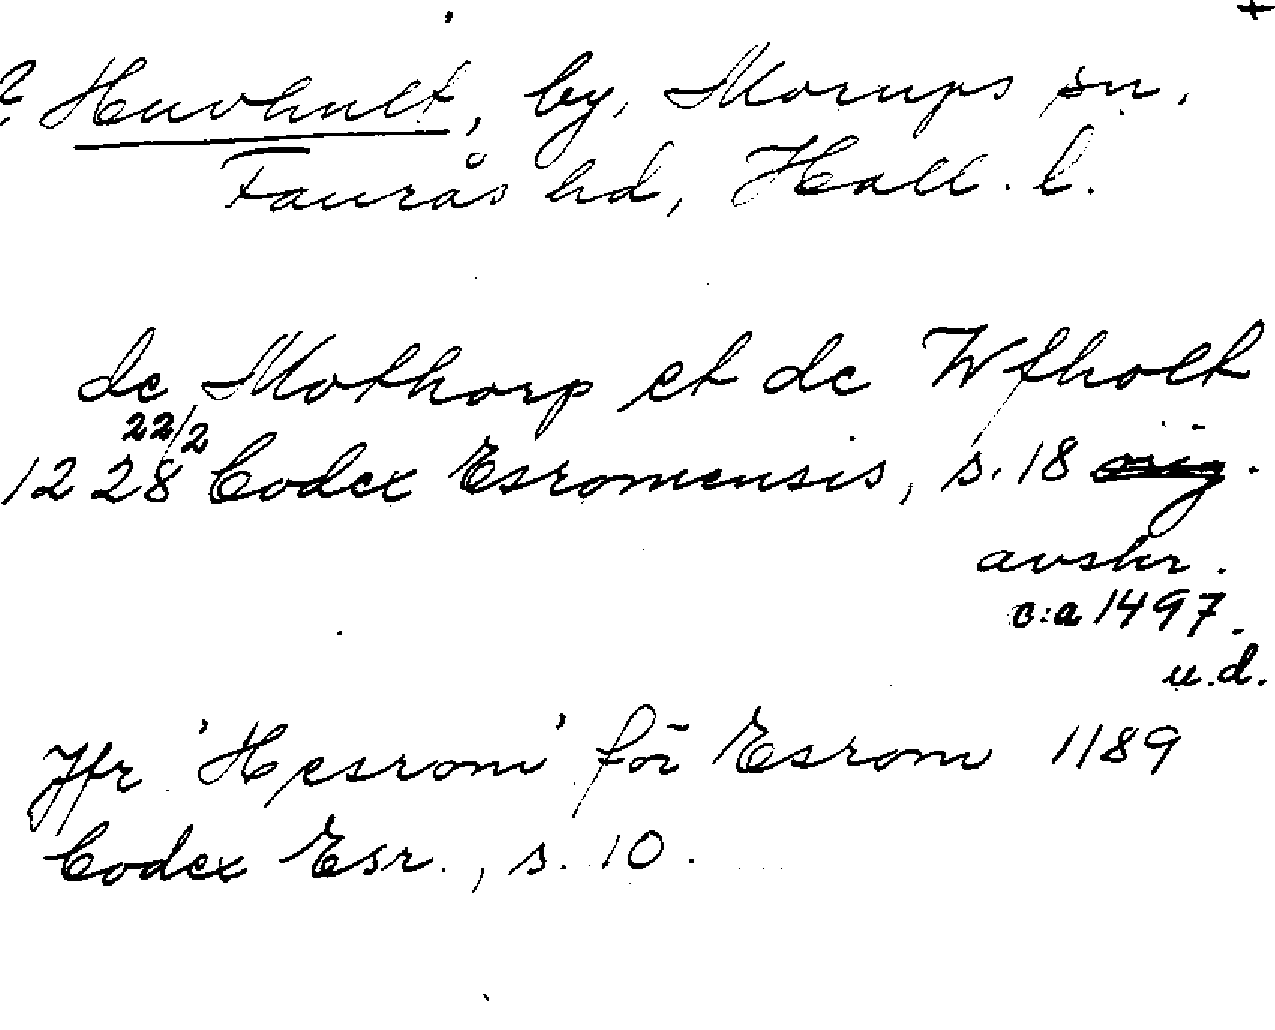 +
? Huvhult, by, Morups sn,
Faurås hd, Hall. l.
de Mothorp et de Wfholt
22/2
1228 Codex Esromensis, s. 18 orig.
avskr.
c:a 1497.
u.d.
Jfr 'Hesrom' för Esrom 1189
Codex Esr., s. 10.